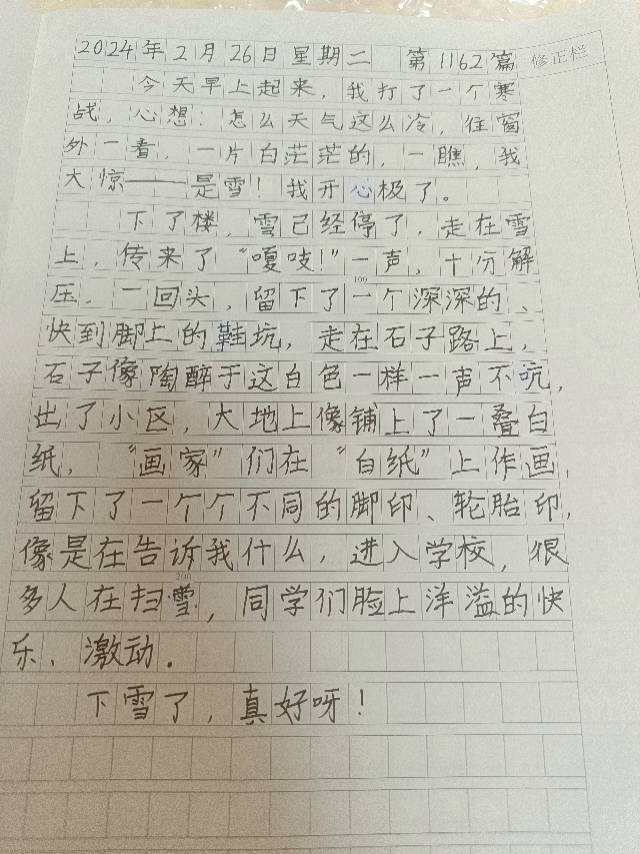 2024年2月26日星期二 第1162篇 修正栏
今天早上起来，我打了一个寒
战，心想：怎么天气这么冷，往窗
外一看，一片白茫茫的，一瞧，我
大惊——是雪！我开心极了。
下了楼，雪已经停了，走在雪
上，传来了“嘎吱！”一声，十分解
压，一回头，留下了一个深深的、
100
快到脚上的鞋坑，走在石子路上，
石子像陶醉于这白色一样一声不吭，
出了小区，大地上像铺上了一叠白
纸，“画家”们在“白纸”上作画，
留下了一个个不同的脚印、轮胎印，
像是在告诉我什么，进入学校，很
200
多人在扫雪，同学们脸上洋溢的快
乐、激动．
下雪了，真好呀！